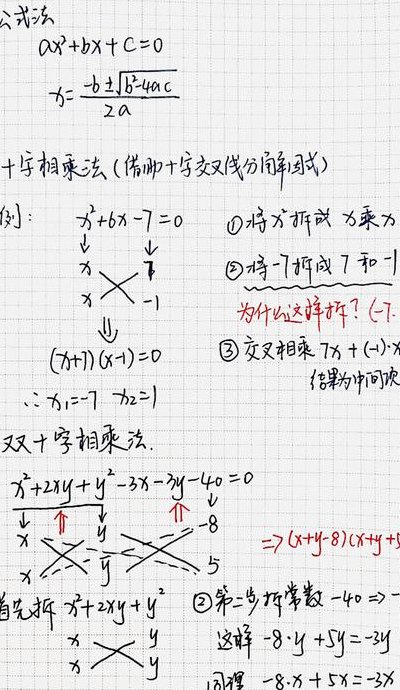 公式法
ax²+bx+c=0
x=(-b±√(b²-4ac))/2a
十字相乘法(借助十字交叉线分解因式)
例: x²+6x-7=0 ①将x²拆成 x乘x
x 7 ②将-7拆成 7和-1
x -1
为什么这样拆?(-7.
(x+7)(x-1)=0 ③交叉相乘 7x+(-1)·x
结果为中间项
∴x₁=-7 x₂=1
双十字相乘法.
x²+2xy+y²-3x-3y-40=0
x y -8
=>(x+y-8)(x+y+5
x y 5
首先拆 x²+2xy+y² ②第二步拆常数 -40 => -
x y 这样 -8·y+5y=-3y
x y
同理 -8·x+5x=-3x